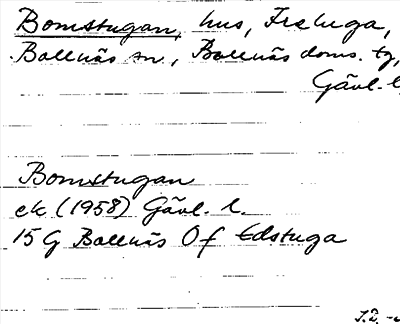 Bomstugan, hus, Freluga,
Bollnäs sn., Bollnäs doms. tg,
Gävl. l.
Bomstugan
ek (1958) Gävl. l.
15 G Bollnäs Of Edstuga